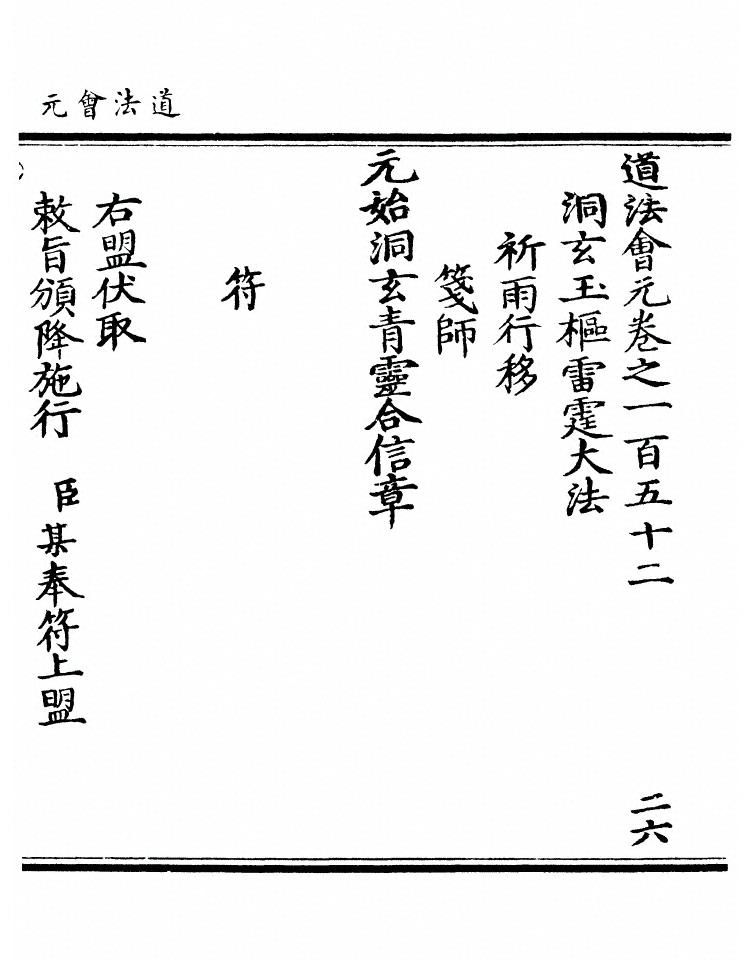 元會法道
道法會元卷之一百五十二 二六
洞玄玉樞雷霆大法
祈雨行移
箋師
元始洞玄青靈合信章
符
右盟伏取
敕旨頒降施行 臣某奉符上盟